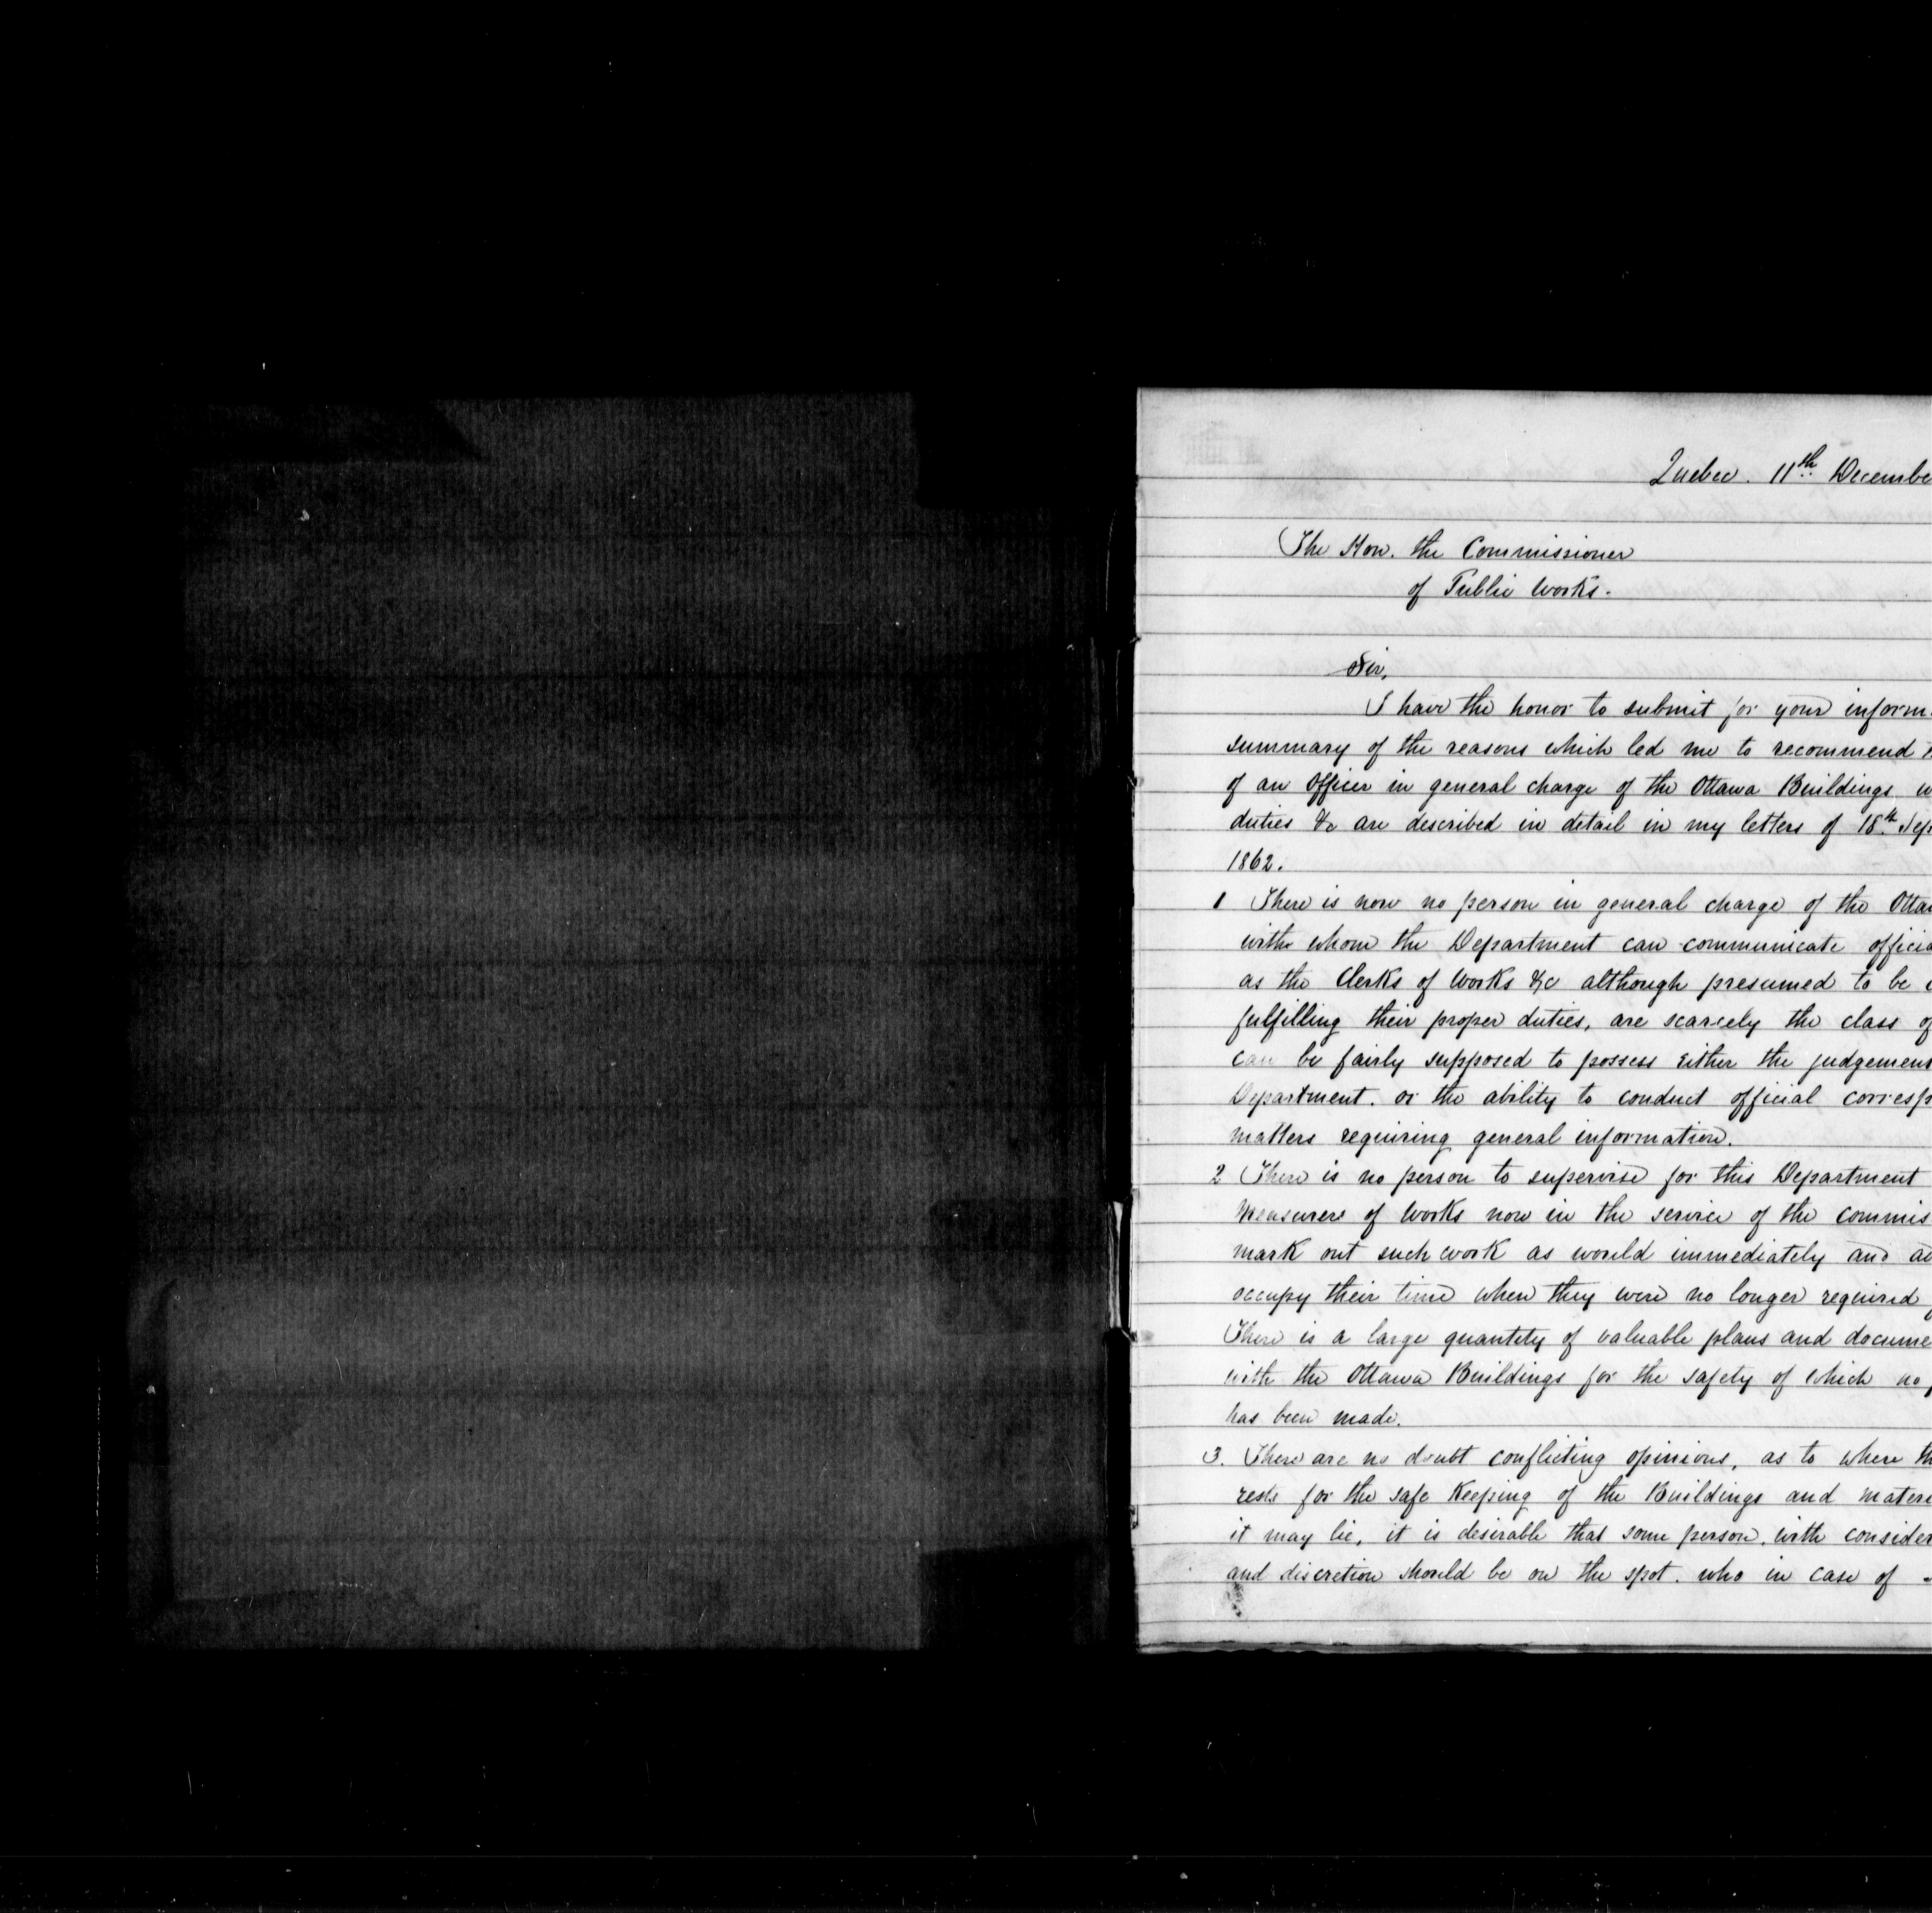 Quebec. 11th Decembe
The Hon. the Commissioner
of Public Works.
Sir,
I have the honor to submit for your inform
summary of the reasons which led me to recommend
of an Officer in general charge of the Ottawa Buildings w
duties &c are described in detail in my letters of 18th Sep
1862.
1 There is now no person in general charge of the Ottaw
with whom the Department can communicate officia
as the Clerks of Works &c although presumed to be
fulfilling their proper duties, are scarcely the class of
can be fairly supposed to possess either the judgement
Department. or the ability to conduct official corresp
matters requiring general information.
2 There is no person to supervise for this Department
Measurers of Works now in the service of the commis
mark out such work as would immediately and ad
occupy their time when they were no longer required
There is a large quantity of valuable plans and docume
with the Ottawa Buildings for the safety of which no
has been made.
3. There are no doubt conflicting opinions, as to where th
rests for the safe Keeping of the Buildings and materi
it may lie, it is desirable that some person, with consider
and discretion should be on the spot. who in case of